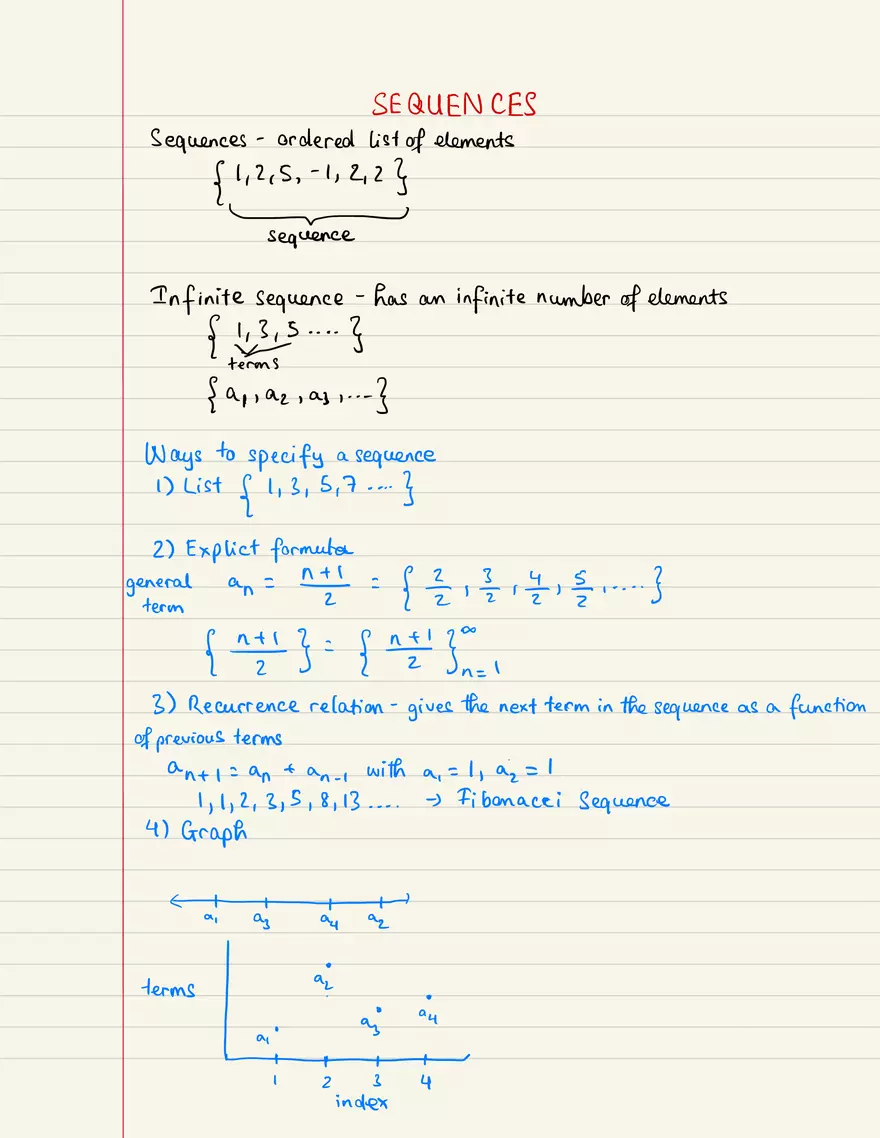 SEQUENCES
Sequences - ordered list of elements
{ 1, 2, 5, -1, 2, 2 }
sequence
Infinite sequence - has an infinite number of elements
{ 1, 3, 5 .... }
terms
{ a₁, a₂, a₃, ... }
Ways to specify a sequence
1) List { 1, 3, 5, 7 .... }
2) Explict formula
general term aₙ = (n+1)/2 = { 2/2, 3/2, 4/2, 5/2, .... }
{ (n+1)/2 } = { (n+1)/2 }ₙ₌₁^∞
3) Recurrence relation - gives the next term in the sequence as a function
of previous terms
aₙ₊₁ = aₙ + aₙ₋₁ with a₁ = 1, a₂ = 1
1, 1, 2, 3, 5, 8, 13 .... → Fibonacci Sequence
4) Graph
a₁ a₃ a₄ a₂
terms
a₂
a₃ a₄
a₁
1 2 3 4
index